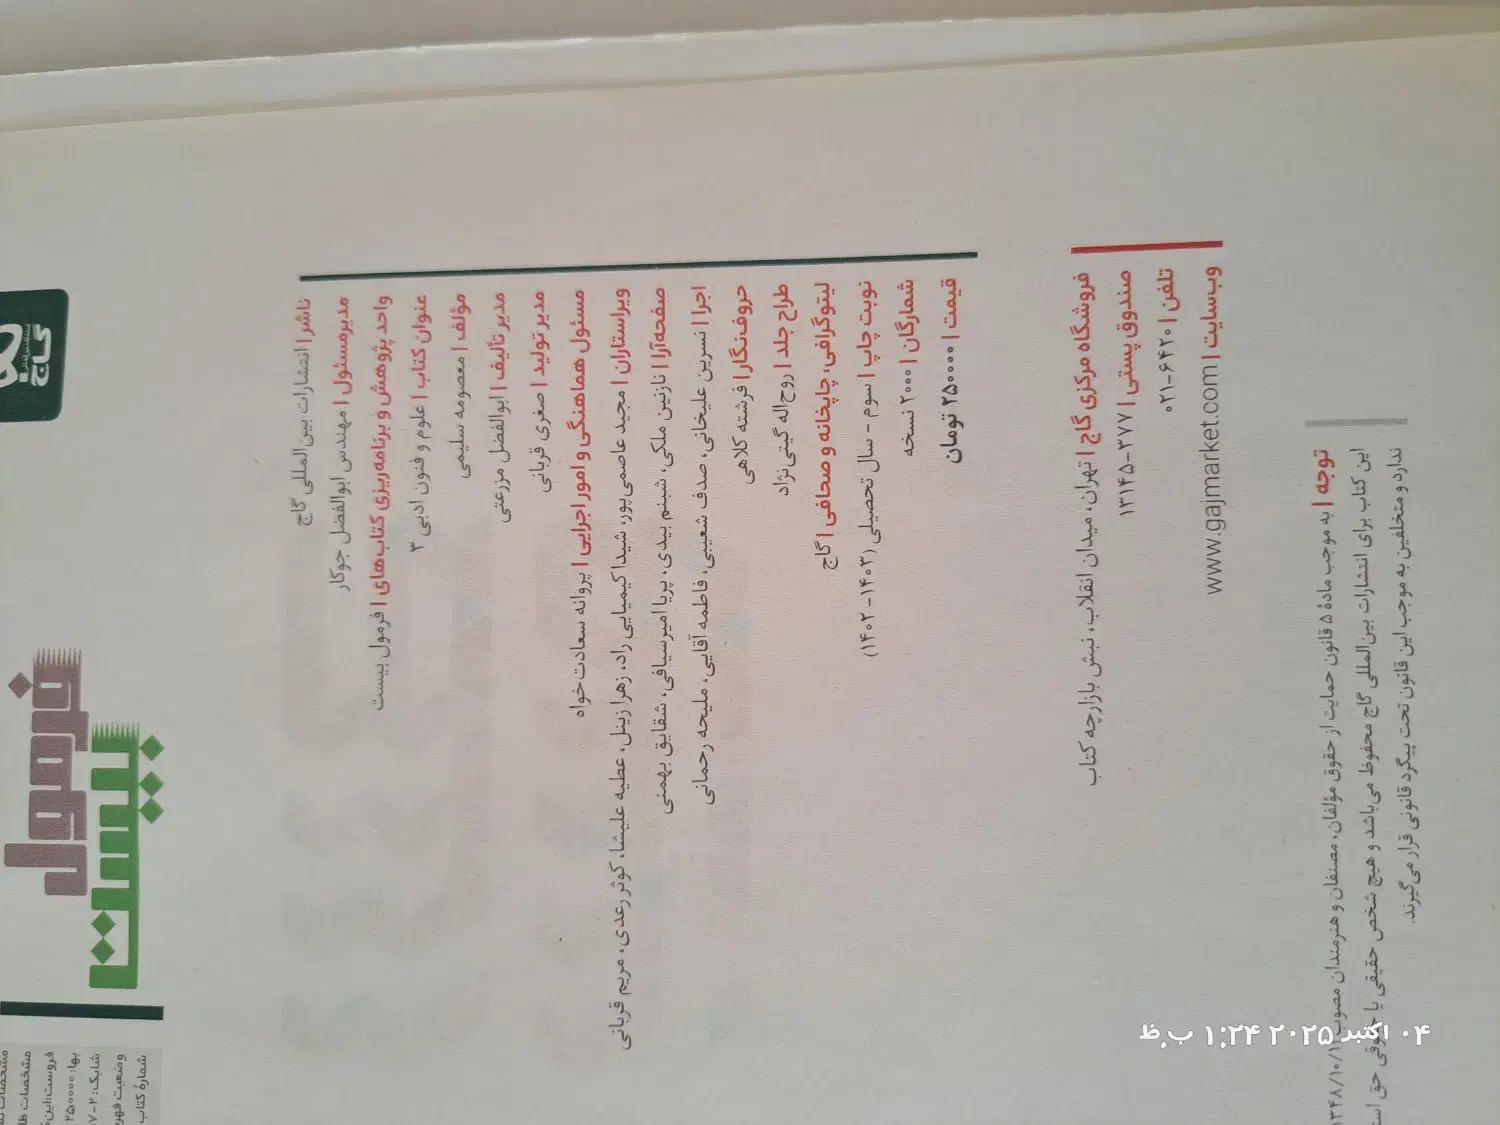 گاج
فرمول
بیست
ناشر | انتشارات بین‌المللی گاج
مدیرمسئول | مهندس ابوالفضل جوکار
واحد پژوهش و برنامه‌ریزی کتاب‌های | فرمول بیست
عنوان کتاب | علوم و فنون ادبی ۳
مؤلف | معصومه سلیمی
مدیر تألیف | ابوالفضل مزرعتی
مدیر تولید | صغری قربانی
مسئول هماهنگی و امور اجرایی | پروانه سعادت‌خواه
ویراستاران | مجید عاصمی‌پور، شیدا کیمیایی راد، زهرا زینل، عطیه علیشا، کوثر رعدی، مریم قربانی
صفحه‌آرا | نازنین ملکی، شبنم بیدی، پریا امیرسیافی، شقایق بهمنی
اجرا | نسرین علیخانی، صدف شعیبی، فاطمه آقایی، ملیحه رحمانی
حروف‌نگار | فرشته کلاهی
طراح جلد | روح‌اله گیتی‌نژاد
لیتوگرافی، چاپخانه و صحافی | گاج
نوبت چاپ | سوم - سال تحصیلی (۱۴۰۳-۱۴۰۲)
شمارگان | ۲۰۰۰ نسخه
قیمت | ۲۵۰۰۰۰ تومان
فروشگاه مرکزی گاج | تهران، میدان انقلاب، نبش بازارچه کتاب
صندوق پستی | ۳۷۷-۱۳۱۴۵
تلفن | ۶۴۲۰-۰۲۱
وب‌سایت | www.gajmarket.com
توجه | به موجب مادهٔ ۵ قانون حمایت از حقوق مؤلفان، مصنفان و هنرمندان مصوب ۱۳۴۸/۱۰/۱۱
این کتاب برای انتشارات بین‌المللی گاج محفوظ می‌باشد و هیچ شخص حقیقی یا حقوقی حق
ندارد و متخلفین به موجب این قانون تحت پیگرد قانونی قرار می‌گیرند.
مشخصات
مشخصات
فروست:
بها: ۲۵۰۰۰۰
شابک: ۲-۷
وضعیت
شمارهٔ کتاب
۰۴ اکتبر ۲۰۲۵ ۱:۲۴ ب.ظ